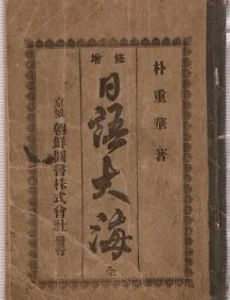 朴重華著
增修
日語大海
全
京城 朝鮮圖書株式會社 發行